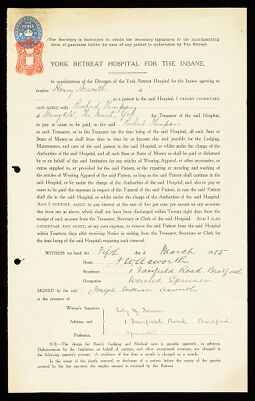 The Secretary is instructed to obtain the necessary signatures to the accompanying
form of guarantee before the case of any patient is undertaken by The Retreat.
YORK RETREAT HOSPITAL FOR THE INSANE.
In consideration of the Directors of the York Retreat Hospital for the Insane agreeing to
receive Henry Acworth
as a patient in the said Hospital, I HEREBY UNDERTAKE
AND AGREE WITH Richard Thompson
of The Mount, York the Treasurer of the said Hospital,
to pay or cause to be paid, to the said Thompson
as such Treasurer, or to the Treasurer for the time being of the said Hospital, all such Sum
or Sums of Money as shall from time to time be or become due and payable for the Lodging,
Maintenance, and care of the said patient in the said Hospital, or whilst under the charge of the
Authorities of the said Hospital, and all such Sum or Sums of Money as shall be paid or disbursed
by or on behalf of the said Institution for any articles of Wearing Apparel, or other necessaries, or
extras supplied to, or provided for the said Patient, or the repairing or mending and washing of
the articles of Wearing Apparel of the said Patient, as long as the said Patient shall continue in the
said Hospital, or be under the charge of the Authorities of the said Hospital, and also to pay or
cause to be paid the expenses in respect of the Funeral of the said Patient, in case the said Patient
shall die in the said Hospital, or whilst under the charge of the Authorities of the said Hospital.
AND I FURTHER AGREE to pay interest at the rate of five per cent per annum on any amounts
due from me as above, which shall not have been discharged within Twenty-eight days from the
receipt of such account from the Treasurer, Secretary or Clerk of the said Hospital. AND I ALSO
UNDERTAKE AND AGREE, at my own expense, to remove the said Patient from the said Hospital
within Fourteen days after receiving Notice in writing from the Treasurer, Secretary or Clerk for
the time being of the said Hospital, requiring such removal.
WITNESS my hand the Fifth day March 1915
Name J W Acworth
Residence 1 Fairfield Road Bradford
Occupation Worsted Spinner
SIGNED by the said Joseph William Acworth
in the presence of
Witness's Signature,
Address, and 1 Fairfield Road Bradford
Profession. Spinster
N.B.—The charge for Board, Lodging and Medical care is payable quarterly, in advance.
Disbursements by the Institution on behalf of patients, and other exceptional expenses, are charged in
the following quarter's account. A residence of less than a month is charged as a month.
In the event of the death, removal, or discharge of a patient before the expiry of the quarter
covered by the last payment, the surplus amount is returned by the Retreat.